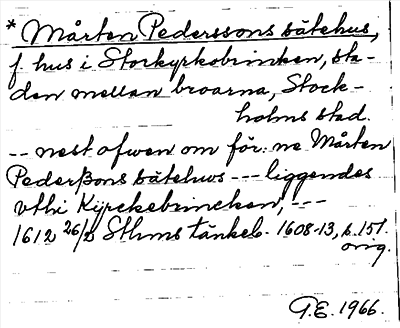 * Mårten Pederssons sätehus,
f. hus i Storkyrkobrinken, sta-
den mellan broarna, Stock-
holms stad.
-- nest ofwen om för: ne Mårten
Pederßons sätehws --- liggendes
vthi Kyrckebrincken, ---
1612 26/2 Sthms tänkeb. 1608-13, s. 151.
orig.
G.E. 1966.